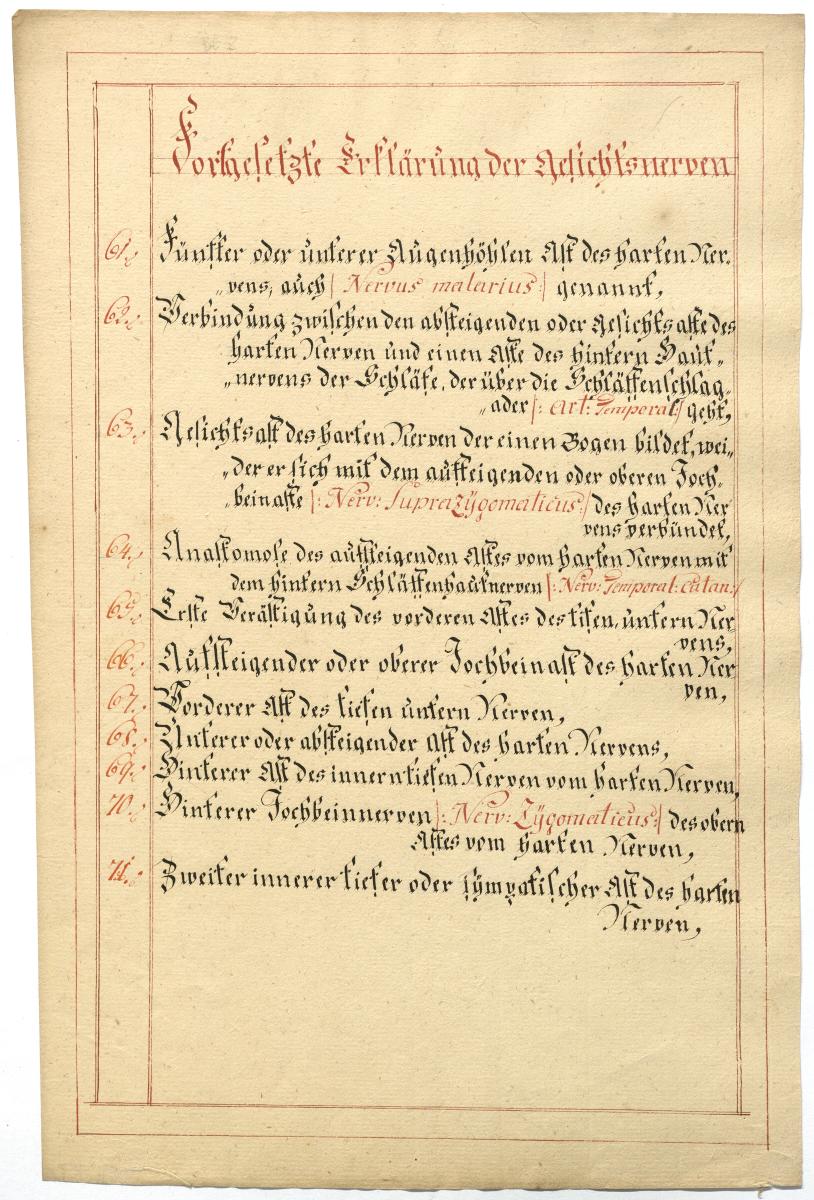 Fortgesetzte Erklärung der Gesichtsnerven
61. Fünfter oder unterer Augenhöhlen Ast des harten Ner„
„vens, auch |: Nervus malarius :| genannt,
62. Verbindung zwischen den absteigenden oder Gesichtsaste des
harten Nerven und einen Aste des hintern Haut„
„nervens der Schläfe, der über die Schläffenschlag„
„ader |: Art: Temporal :| geht,
63. Gesichtsast des harten Nerven der einen Bogen bildet, wei„
„der er sich mit dem aufsteigenden oder oberen Joch„
„beinaste |: Nerv: Suprazÿgomaticus :| des harten Ner
vens verbündet,
64. Anastomose des aufsteigenden Astes vom harten Nerven mit
dem hintern Schläffenhautnerven |: Nerv: Temporal: Cutan: |
65. Erste Verästigung des vorderen Astes des tifen, untern Ner
vens,
66. Aufsteigender oder oberer Jochbeinast des harten Ner
ven,
67. Vorderer Ast des tiefen untern Nerven,
68. Unterer oder absteigender Ast des harten Nervens,
69. Hinterer Ast des innern tiefen Nerven vom harten Nerven,
70. Hinterer Jochbeinnerven |: Nerv: Zÿgomaticus :| des obern
Astes vom harten Nerven,
71. Zweiter innerer tiefer oder sÿmpatischer Ast des harten
Nerven,